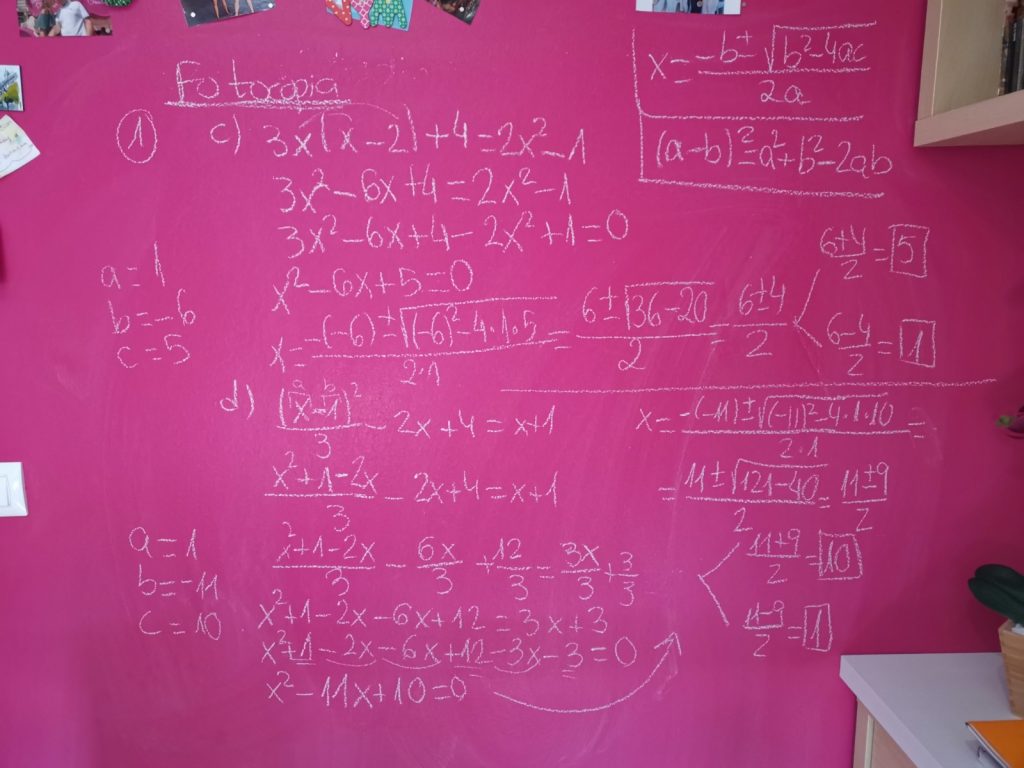 Fotocopia
x = (-b ± √(b² - 4ac)) / 2a
(a-b)² = a² + b² - 2ab
① c) 3x(x-2)+4=2x²-1
3x²-6x+4=2x²-1
3x²-6x+4-2x²+1=0
x²-6x+5=0
a=1
b=-6
c=5
x = (-(-6) ± √((-6)²-4·1·5)) / 2·1 = (6 ± √(36-20)) / 2 = (6±4)/2
(6+4)/2 = 5
(6-4)/2 = 1
d) (x-1)²/3 - 2x+4=x+1
a b
(x²+1-2x)/3 - 2x+4=x+1
(x²+1-2x)/3 - 6x/3 + 12/3 = 3x/3 + 3/3
x²+1-2x-6x+12=3x+3
x²+1-2x-6x+12-3x-3=0
x²-11x+10=0
a=1
b=-11
c=10
x = (-(-11) ± √((-11)²-4·1·10)) / 2·1 =
= (11 ± √(121-40)) / 2 = (11±9)/2
(11+9)/2 = 10
(11-9)/2 = 1